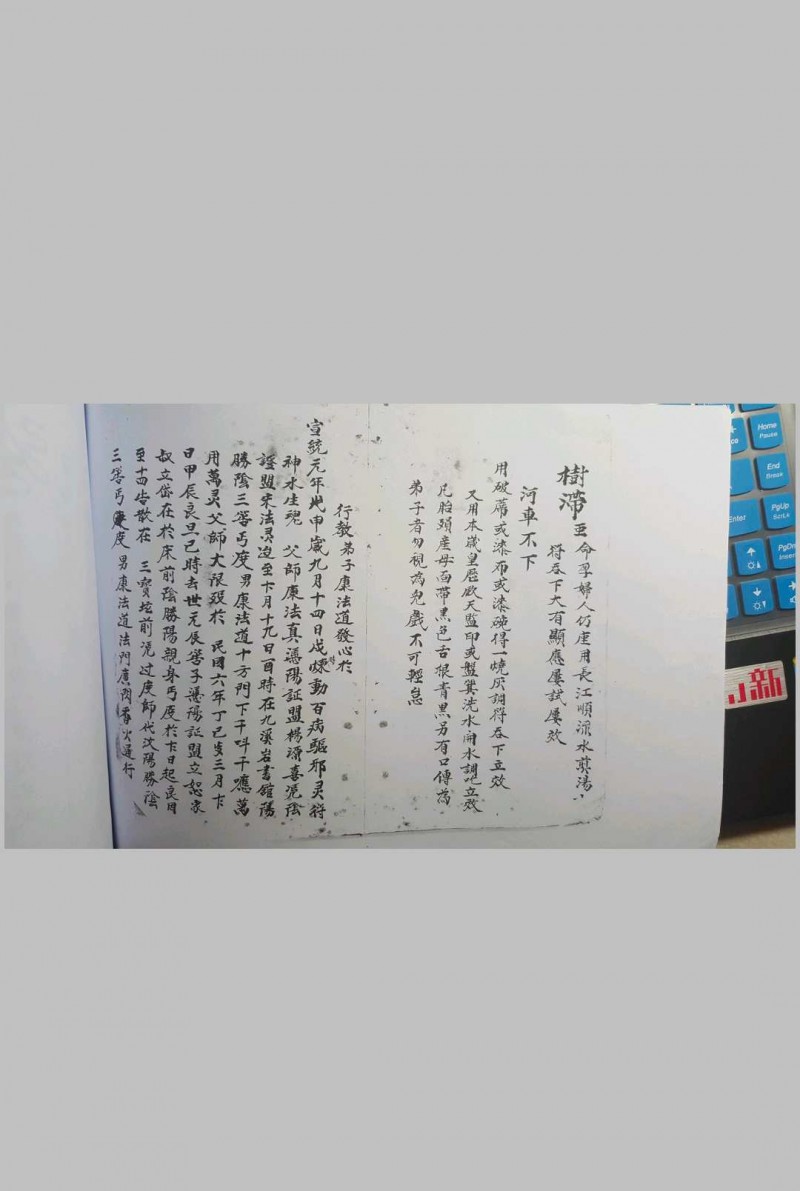 樹滯
命孕婦人仃產用長江順流水煎湯
符吞下大有顯應屢試屢效
河車不下
用破蓆或漆布或漆 得一燒灰調符吞下立效
又用本歲皇曆欽天監印或盤 洗水開水調吃立效
凡胎頭產母面帶黑色舌根青黑另有口傳為
弟子者勿視為兒戲不可輕怠
行教弟子康法道發心於
宣統元年 甲歲九月十四日戌時 動百病驅邪灵符
神水生魂 父師康法真馮陽証盟楊 喜 陰
證盟宋法灵 至卞月十九日酉時在九溪岩書舘陽
勝陰三筶丐度男康法道十方門下千叫千應萬
用萬灵父師大限 於 民國六年丁巳歲三月卞
日甲辰良旦已時去世元辰筶子馮陽証盟立恕家
叔立 在於床前陰勝陽親身丐度於卞日起良日
至十四 散在 三寶 前 过度師代沈陽勝陰
三筶丐度男康法道法門廣開香火通行
Home
Pause
End
Break
PgUp
ScrLk
PgDn
Enter
新